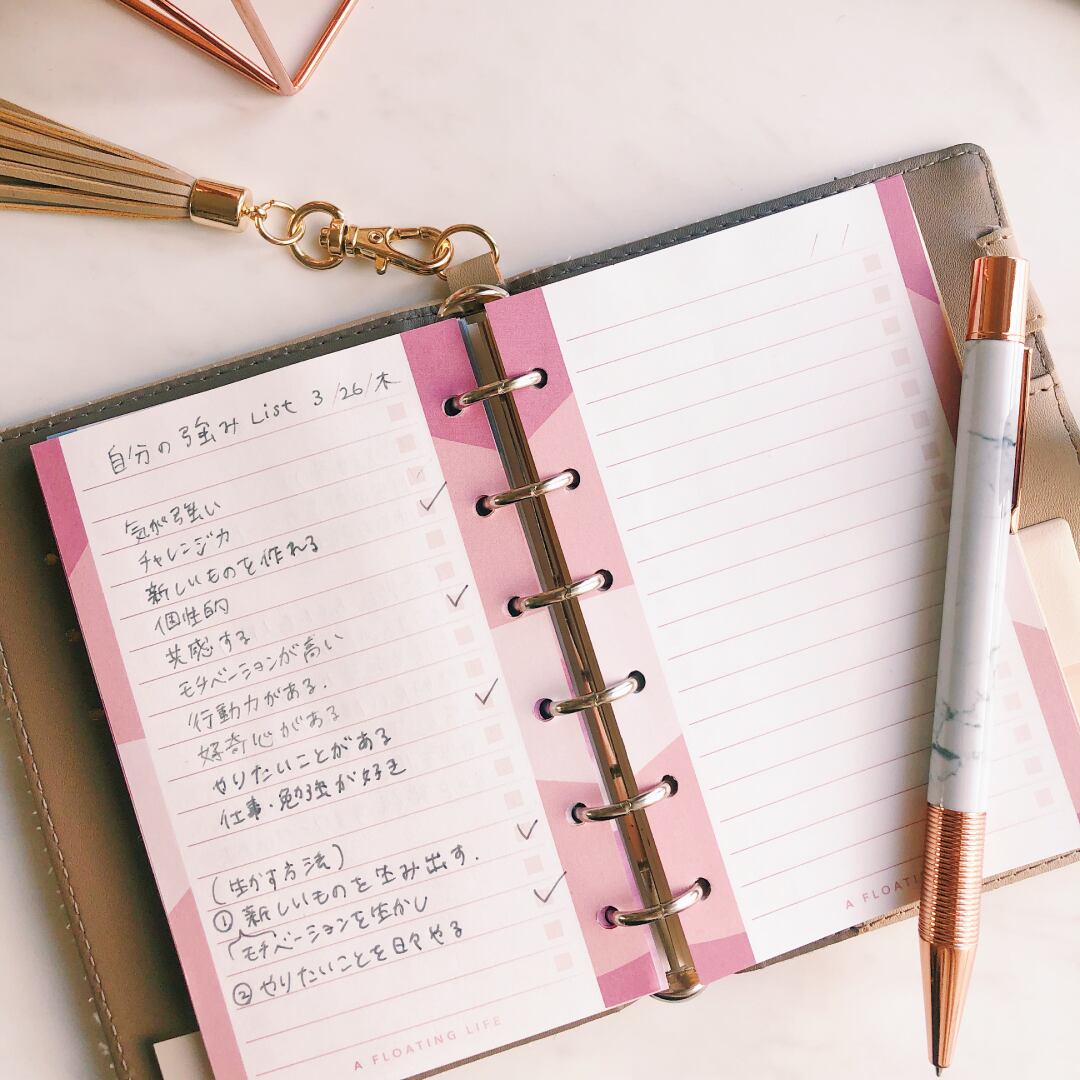 自分の強み List 3/26/木
気が強い
チャレンジ力
新しいものを作れる
個性的
共感する
モチベーションが高い
行動力がある.
好奇心がある
やりたいことがある
仕事・勉強が好き
(生かす方法)
① 新しいものを生み出す.
モチベーションを生かし
② やりたいことを日々やる
A FLOATING LIFE
/ /
A FLOATI